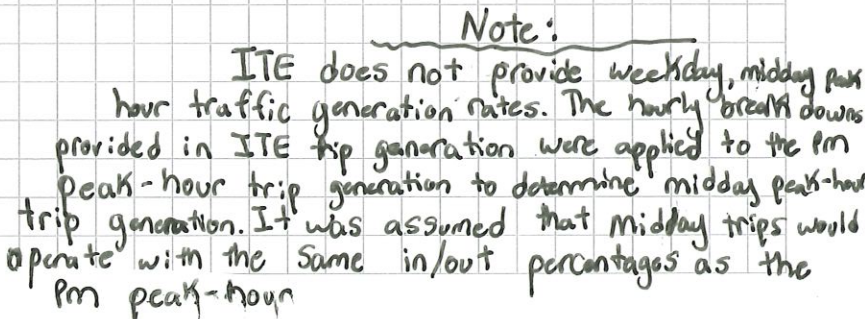 Note:
ITE does not provide weekday, midday peak
hour traffic generation rates. The hourly break downs
provided in ITE trip generation were applied to the pm
peak-hour trip generation to determine midday peak-hour
trip generation. It was assumed that midday trips would
operate with the same in/out percentages as the
pm peak-hour